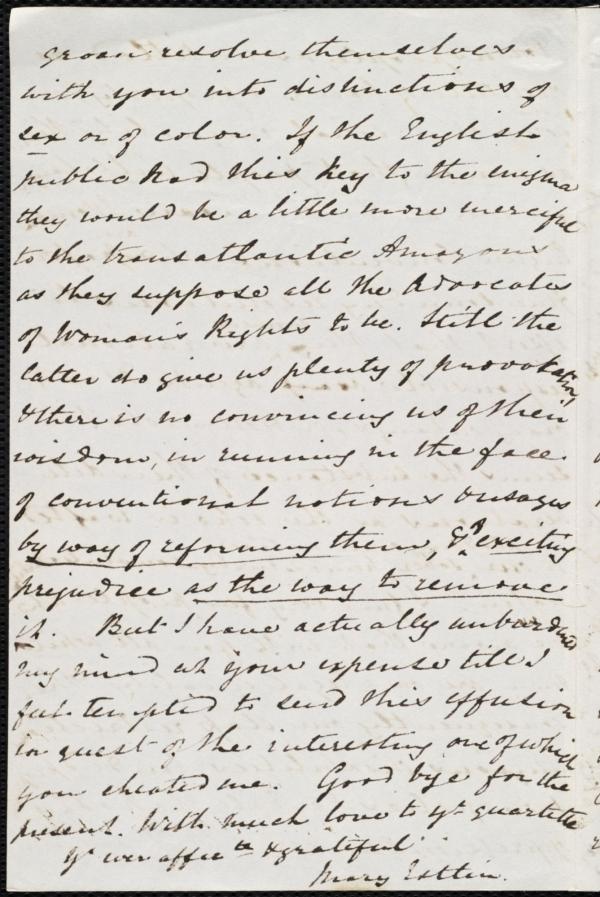 groan resolve themselves
with you into distinctions of
sex or of color. If the English
public had this key to the enigma
they would be a little more merciful
to the transatlantic Amazons
as they suppose all the Advocates
of Woman's Rights to be. Still the
latter do give us plenty of provokation,
& there is no convincing us of their
wisdom, in running in the face
of conventional notions & usages
by way of reforming them, & of exciting
prejudice as the way to remove
it. But I have actually unburdened
my mind at your expense till I
feel tempted to send this effusion
in quest of the interesting one of which
you cheated me. Good bye for the
present. With much love to yr. quartette
Yr ever affecte & grateful
Mary Estlin.